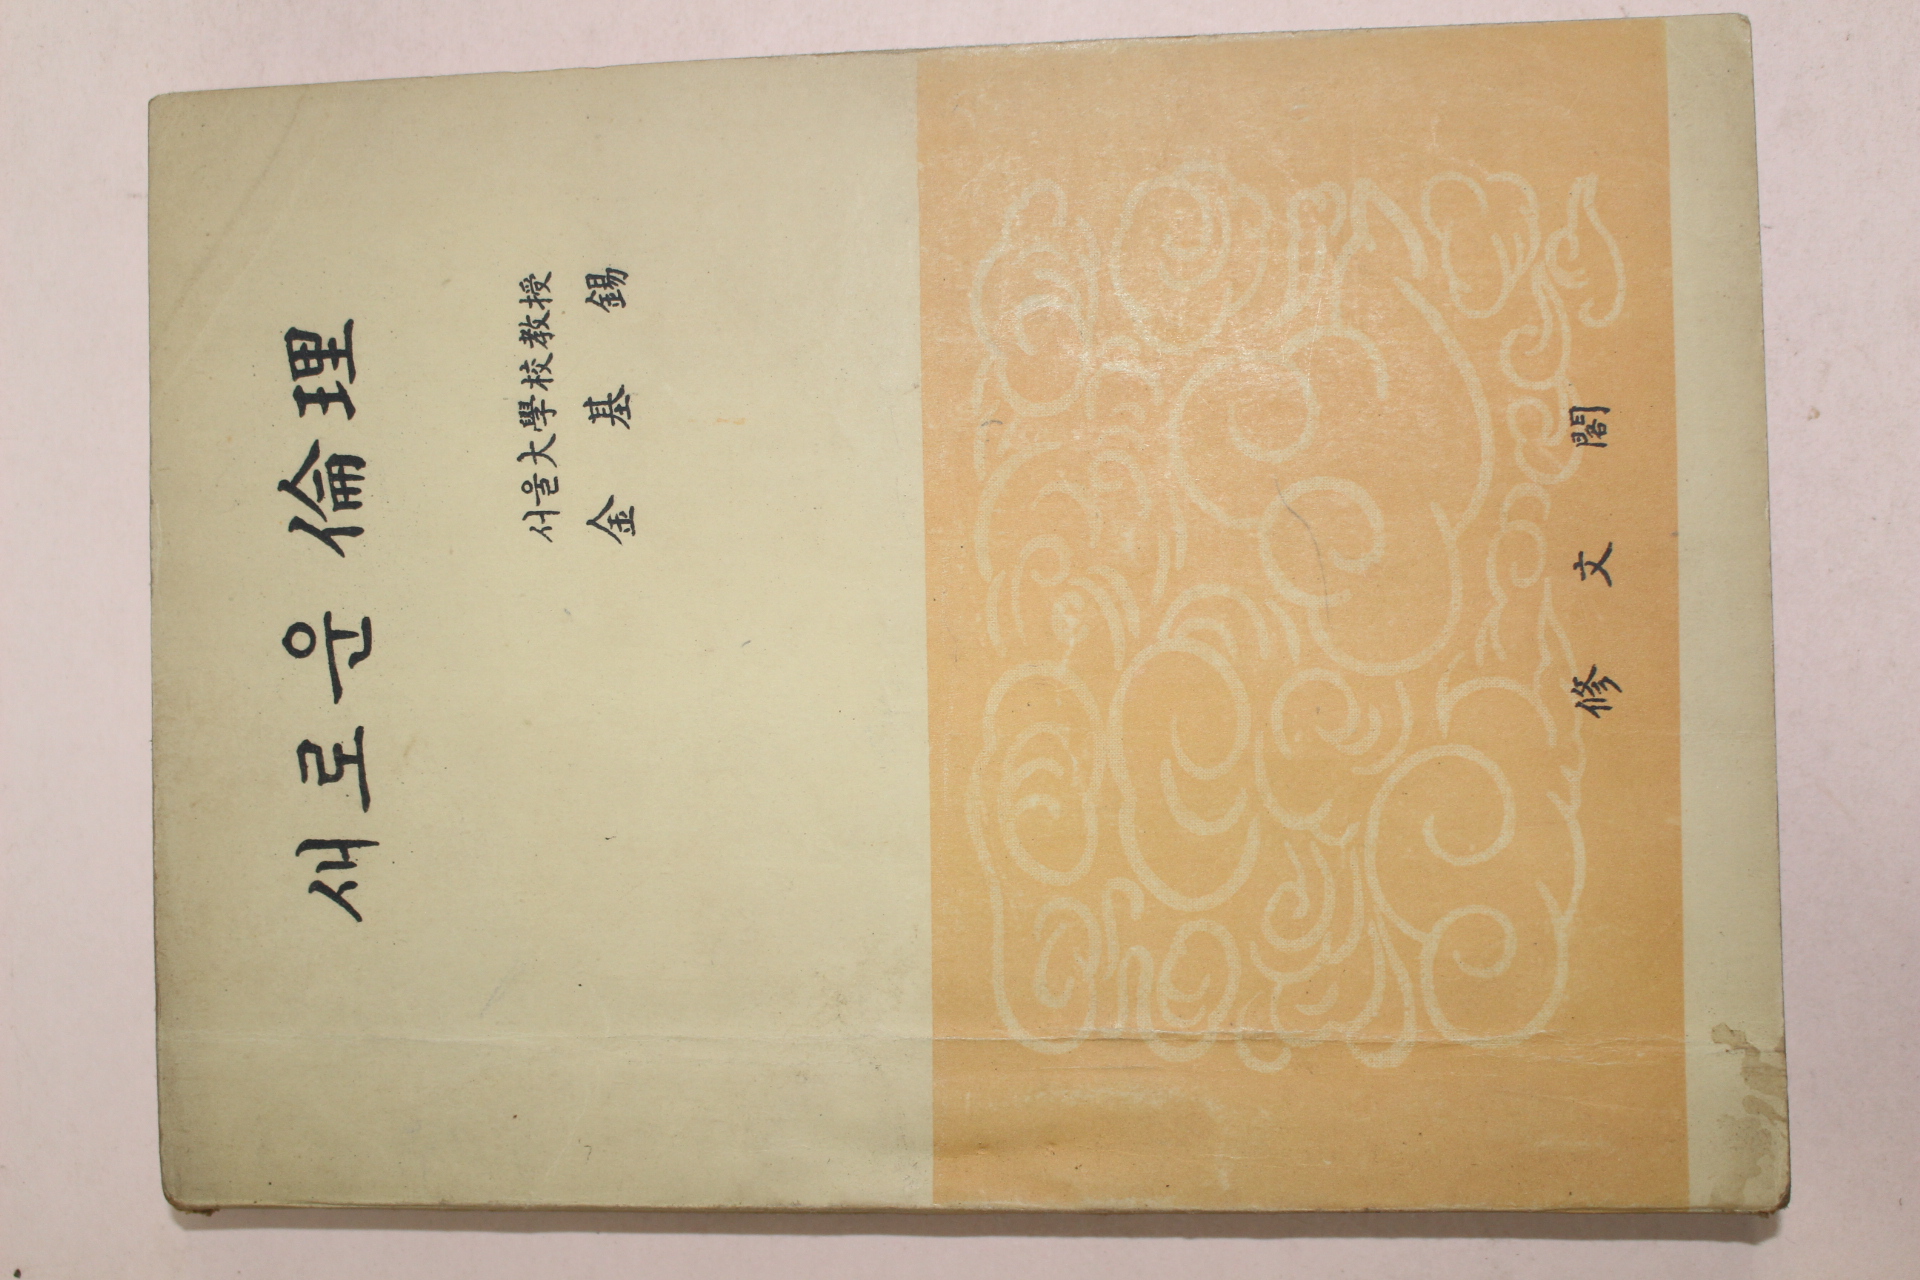 새로운 倫理
서울大學校教授
金基錫
修文閣